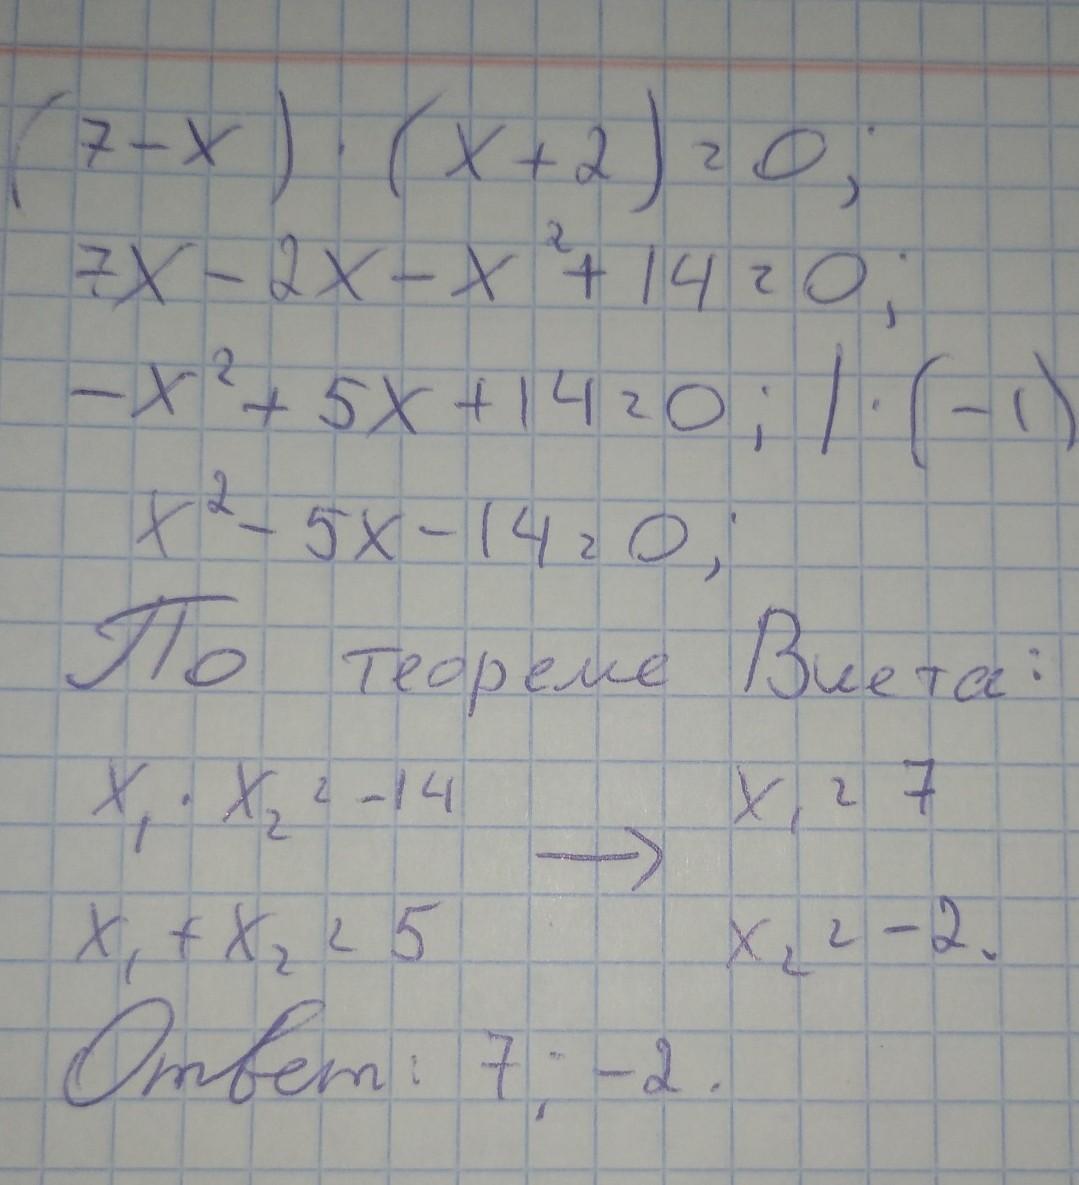 (7-x)·(x+2)=0;
7x-2x-x²+14=0;
-x²+5x+14=0; |·(-1)
x²-5x-14=0;
По теореме Виета:
x₁·x₂=-14 → x₁=7
x₁+x₂=5 x₂=-2.
Ответ: 7; -2.